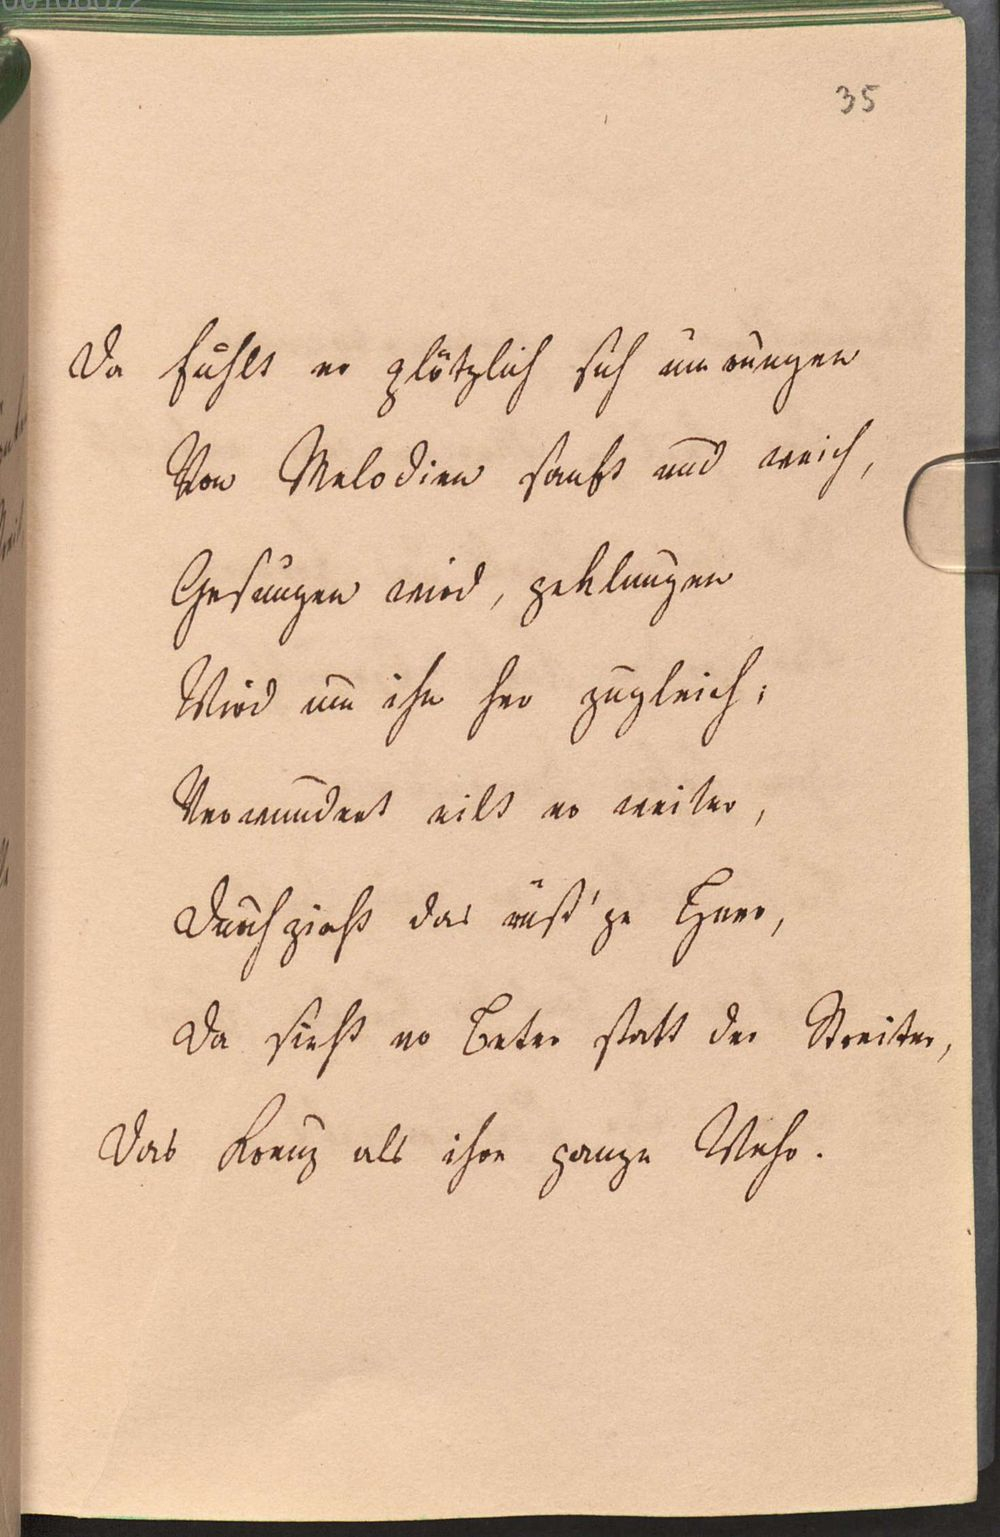 35
Da fühlt er plötzlich sich umrungen
Von Melodien sanft und weich,
Gesungen wird, geklungen
Wird um ihn her zugleich;
Verwundert eilt er weiter,
Durchzieht das rüst'ge Heer,
Da sieht er Beter statt der Streiter,
Das Kreuz als ihre ganze Wehr.